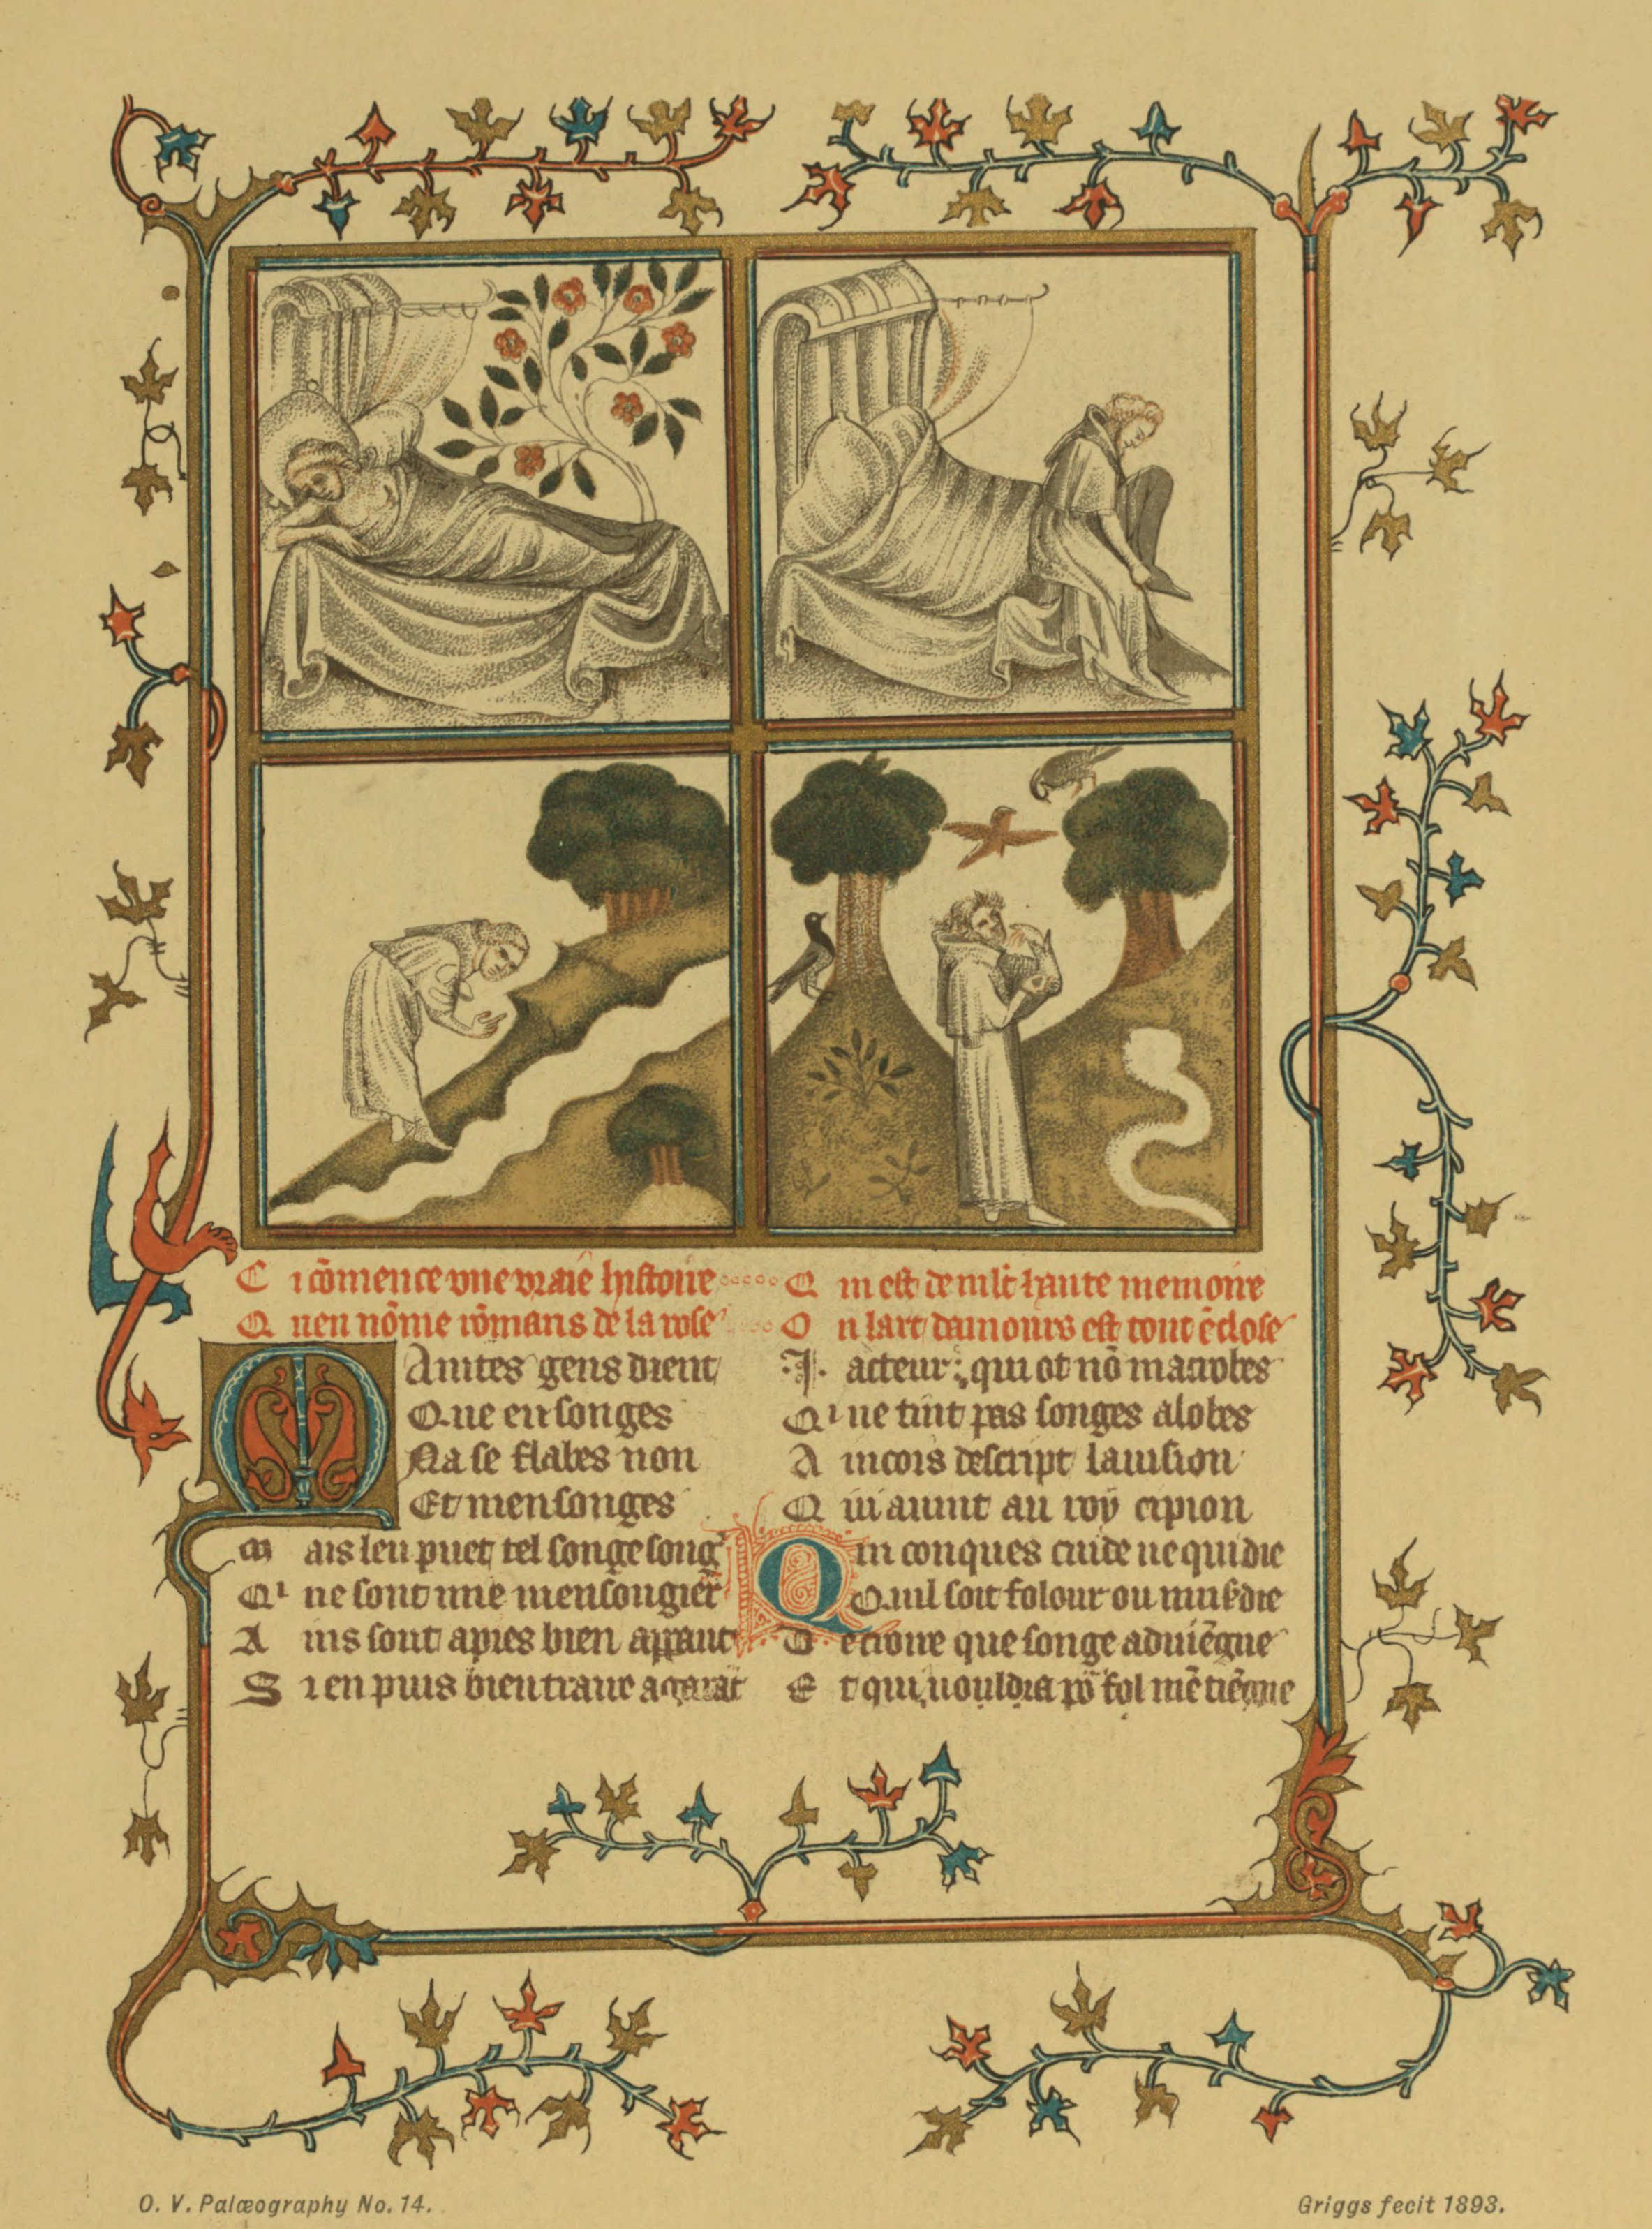 C i cōmence vne vraie hystoire
Q uen nōme rōmans de la rose
M Aintes gens dient
Que en songes
Na se flabes non
Et mensonges
M ais len puet tel songe song̃
Qi ne sont mie mensougier
A ins sont apres bien apparāt
S i en puis bien traire a garāt
Q ui est de mlt haute memoire
O u lart damours est tout ēclose
.J. acteur qui ot nō macrobes
Qi ne tint pas songes a lobes
A incois descript la uision
Q ui auint au roy cipion
Q ui conques cuide ne qui die
Quil soit folour ou musardie
D e croire que songe aduiēgne
E t qui uouldra po² fol mē tiēgne
O. V. Palæography No. 14.
Griggs fecit 1893.